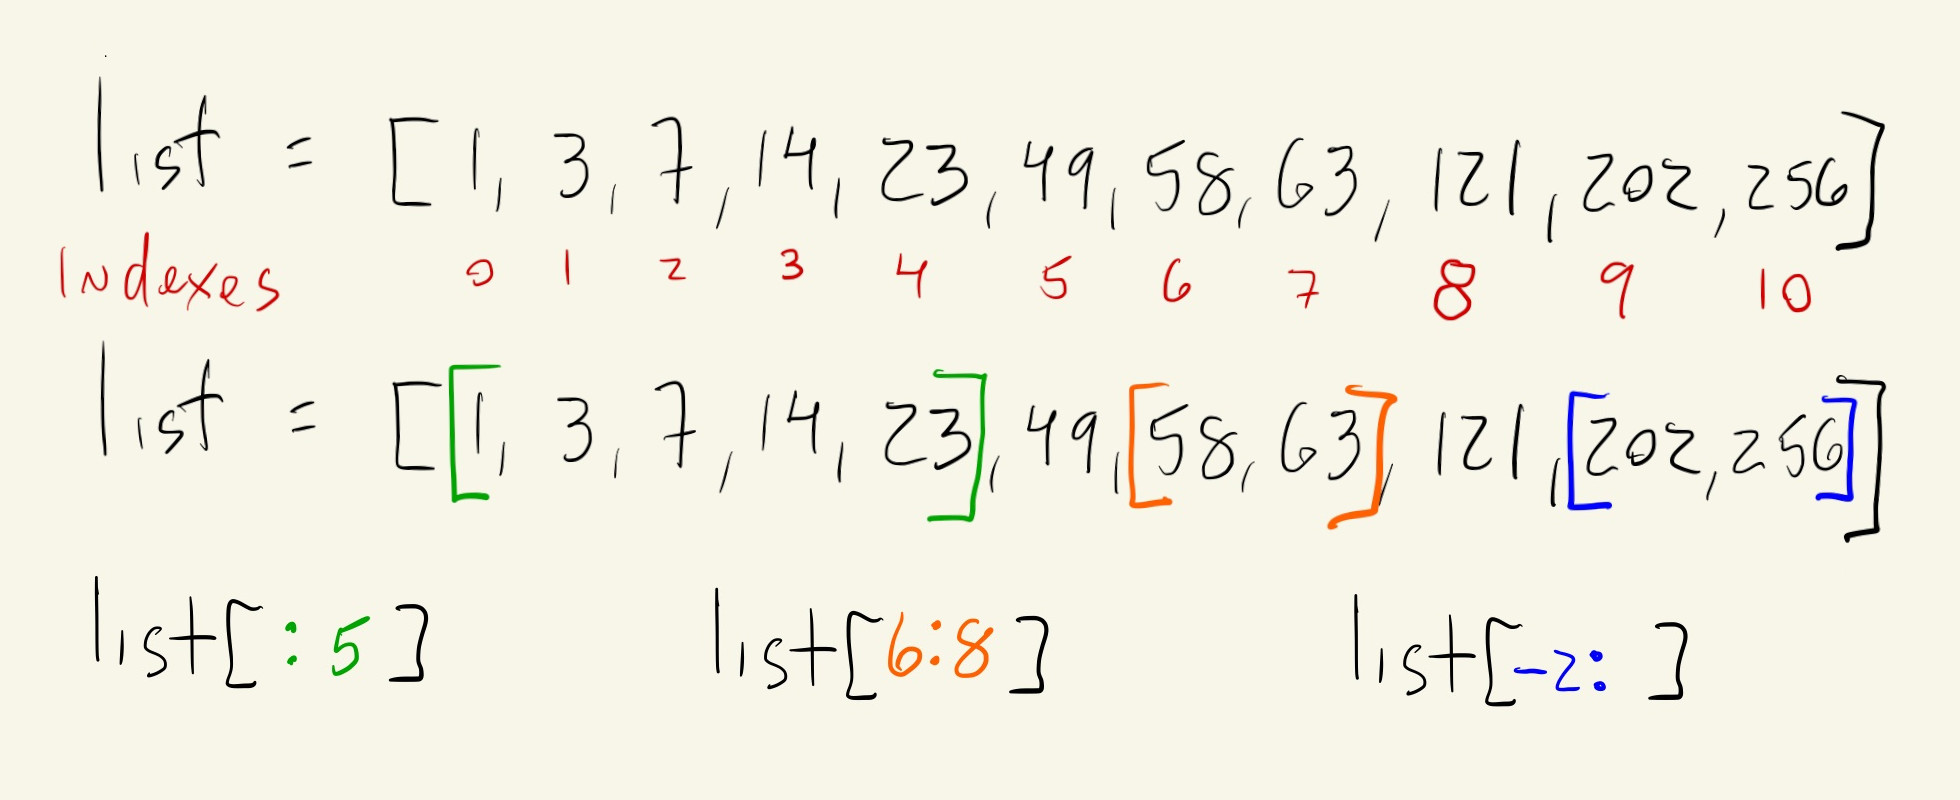 list = [1, 3, 7, 14, 23, 49, 58, 63, 121, 202, 256]
Indexes 0 1 2 3 4 5 6 7 8 9 10
list = [[1, 3, 7, 14, 23], 49, [58, 63], 121, [202, 256]]
list[:5] list[6:8] list[-2:]